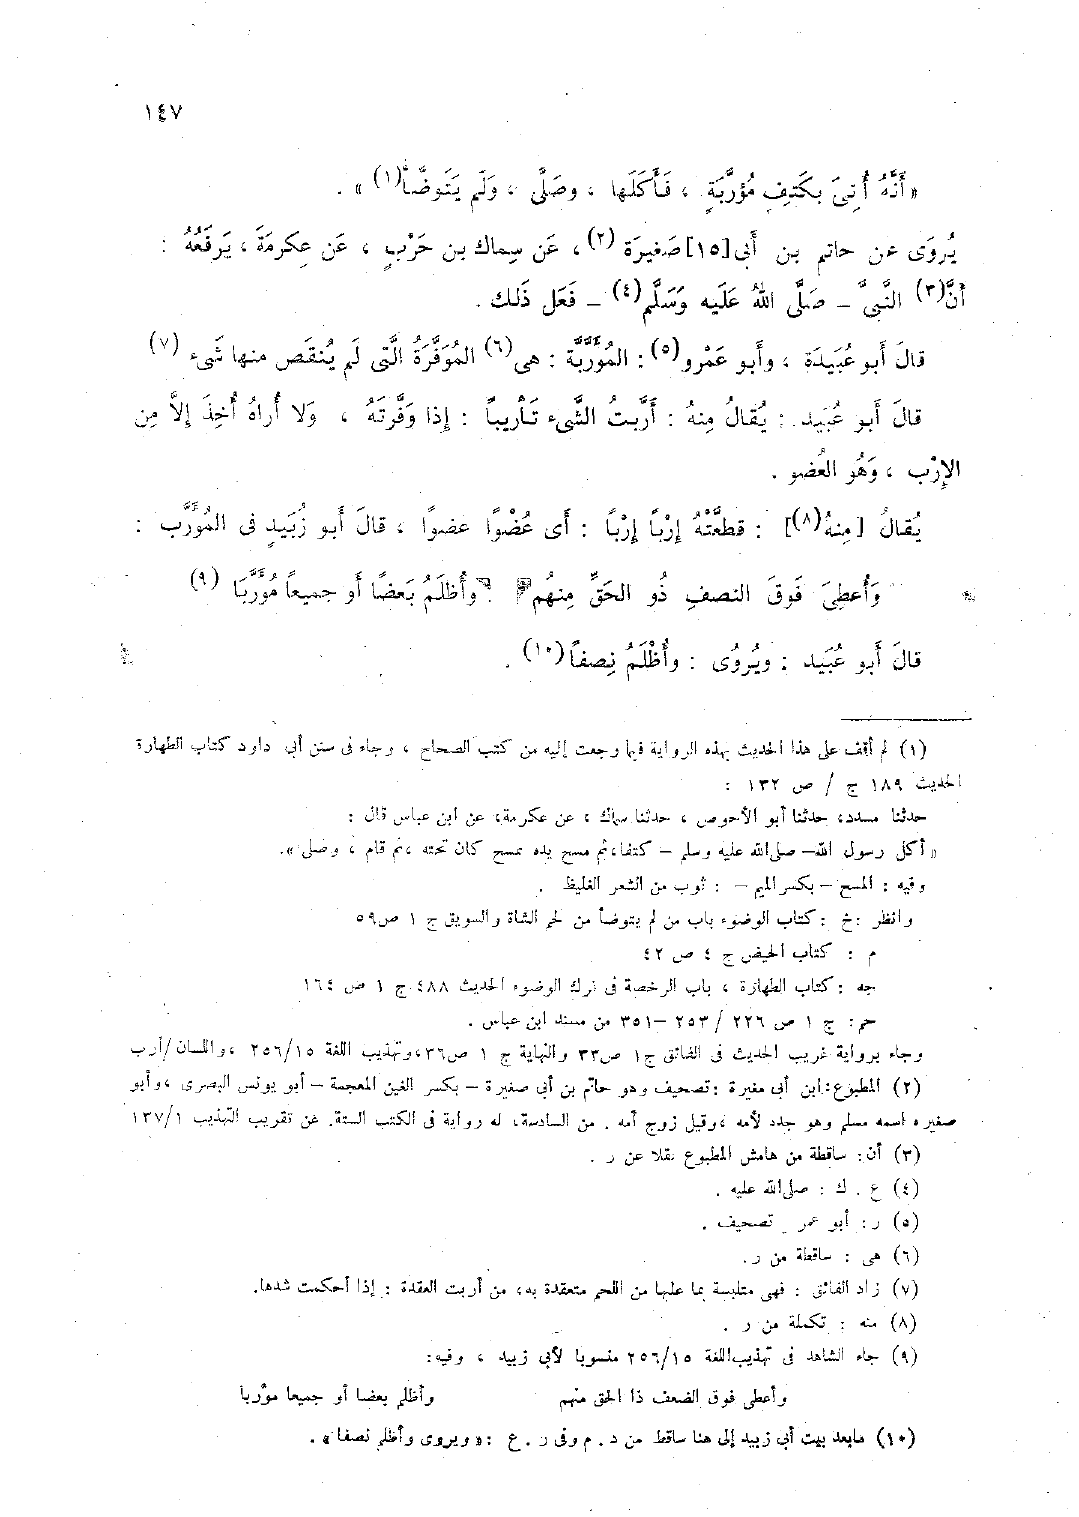 ١٤٧
« أَنَّهُ أُتِىَ بكَتِفٍ مُؤَرَّبَةٍ ، فَأَكَلَها ، وصَلَّى ، وَلَم يَتَوضَّأ(١) » .
يُروَى عن حاتم بن أَبى[١٥]صَغيرَة (٢)، عَن سِماك بن حَرْبٍ ، عَن عِكرمَةَ ، يَرفَعُهُ :
أَنَّ(٣) النَّبىَّ ــ صَلَّى اللهُ عَلَيه وَسَلَّم(٤) ــ فَعَل ذَلك .
قالَ أَبو عُبَيدَة ، وأَبو عَمْرو(٥) : المُؤَرَّبَّة : هى(٦) المُوَفَّرَةُ الَّتى لَم يُنقَص منها شَىء (٧)
قالَ أَبو عُبَيد : يُقالُ مِنهُ : أَرَّبتُ الشَّىء تَأريباً : إِذا وَفَّرتَهُ ، وَلا أُراهُ أُخِذَ إِلاَّ مِن
الإِرْب ، وَهُو العُضو .
يُقالُ [مِنهُ(٨)] : قطعَّتْهُ إِرْباً إِرْباً : أَى عُضْوًا عضوًا ، قالَ أَبو زُبَيدٍ فى المُوَرَّب :
وَأُعطِىَ فَوقَ النصفِ ذُو الحَقِّ مِنهُم وأُظلَمُ بَعضًا أَو جميعاً مُؤَرَّبَا (٩)
قالَ أَبو عُبَيد : ويُروَى : وأُظْلَمُ نِصفاً(١٠) .
(١) لم أقف على هذا الحديث بهذه الرواية فيما رجعت إليه من كتب الصحاح ، وجاء فى سنن أبى داود كتاب الطهارة
الحديث ١٨٩ ج / ص ١٣٢ :
حدثنا مسدد، حدثنا أبو الأحوص ، حدثنا سماك ، عن عكرمة، عن ابن عباس قال :
« أكل رسول الله– صلى الله عليه وسلم – كتفا، ثم مسح يده بمسح كان تحته ، ثم قام ، وصلى ».
وفيه : المسح – بكسر الميم – : ثوب من الشعر الغليظ .
وانظر :خ : كتاب الوضوء باب من لم يتوضأ من لحم الشاة والسويق ج ١ ص٥٩
م : كتاب الحيض ج ٤ ص ٤٢
جه : كتاب الطهارة ، باب الرخصة فى ترك الوضوء الحديث ٤٨٨ ج ١ ص ١٦٤
حم: ج ١ ص ٢٢٦ / ٢٥٣ –٣٥١ من مسند ابن عباس .
وجاء برواية غريب الحديث فى الفائق ج١ ص٣٣ والنهاية ج ١ ص٣٦،وتهذيب اللغة ٢٥٦/١٥ ،واللسان /أرب
(٢) المطبوع:ابن أبى مغيرة :تصحيف وهو حاتم بن أبى صغيرة – بكسر الغين المعجمة – أبو يونس البصرى ،وأبو
صغيره اسمه مسلم وهو جدد لأمه ،وقيل زوج أمه . من السادسة، له رواية فى الكتب الستة. عن تقريب التهذيب ١٣٧/١
(٣) أن: ساقطة من هامش المطبوع نقلا عن ر .
(٤) ع . ك : صلى الله عليه .
(٥) ر: أبو عمر تصحيف .
(٦) هى : ساقطة من ر.
(٧) زاد الفائق : فهى متلبسة بما عليها من اللحم متعقدة به، من أربت العقدة : إذا أحكمت شدها.
(٨) منه : تكملة من ر .
(٩) جاء الشاهد فى تهذيب اللغة ٢٥٦/١٥ منسوبا لأبى زبيد ، وفيه:
وأعطى فوق الضعف ذا الحق منهم وأظلم بعضا أو جميعا مؤربا
(١٠) مابعد بيت أبى زبيد إلى هنا ساقط من د . م وفى ر . ع : « ويروى وأظلم نصفا » .